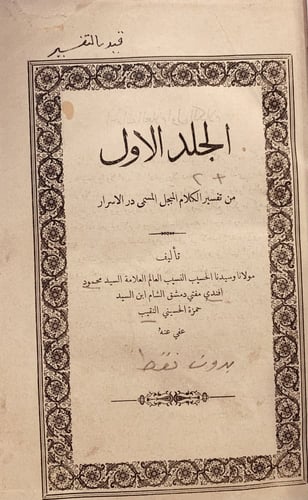 قيد بالتفسير
الجلد الاول
+ ٢
من تفسير الكلام المبجل المسمى در الاسرار
تأليف
مولانا وسيدنا الحسيب النسيب العالم العلامة السيد محمود
افندي مفتي دمشق الشام ابن السيد
حمزة الحسيني النقيب
عفي عنه
بدون نقط